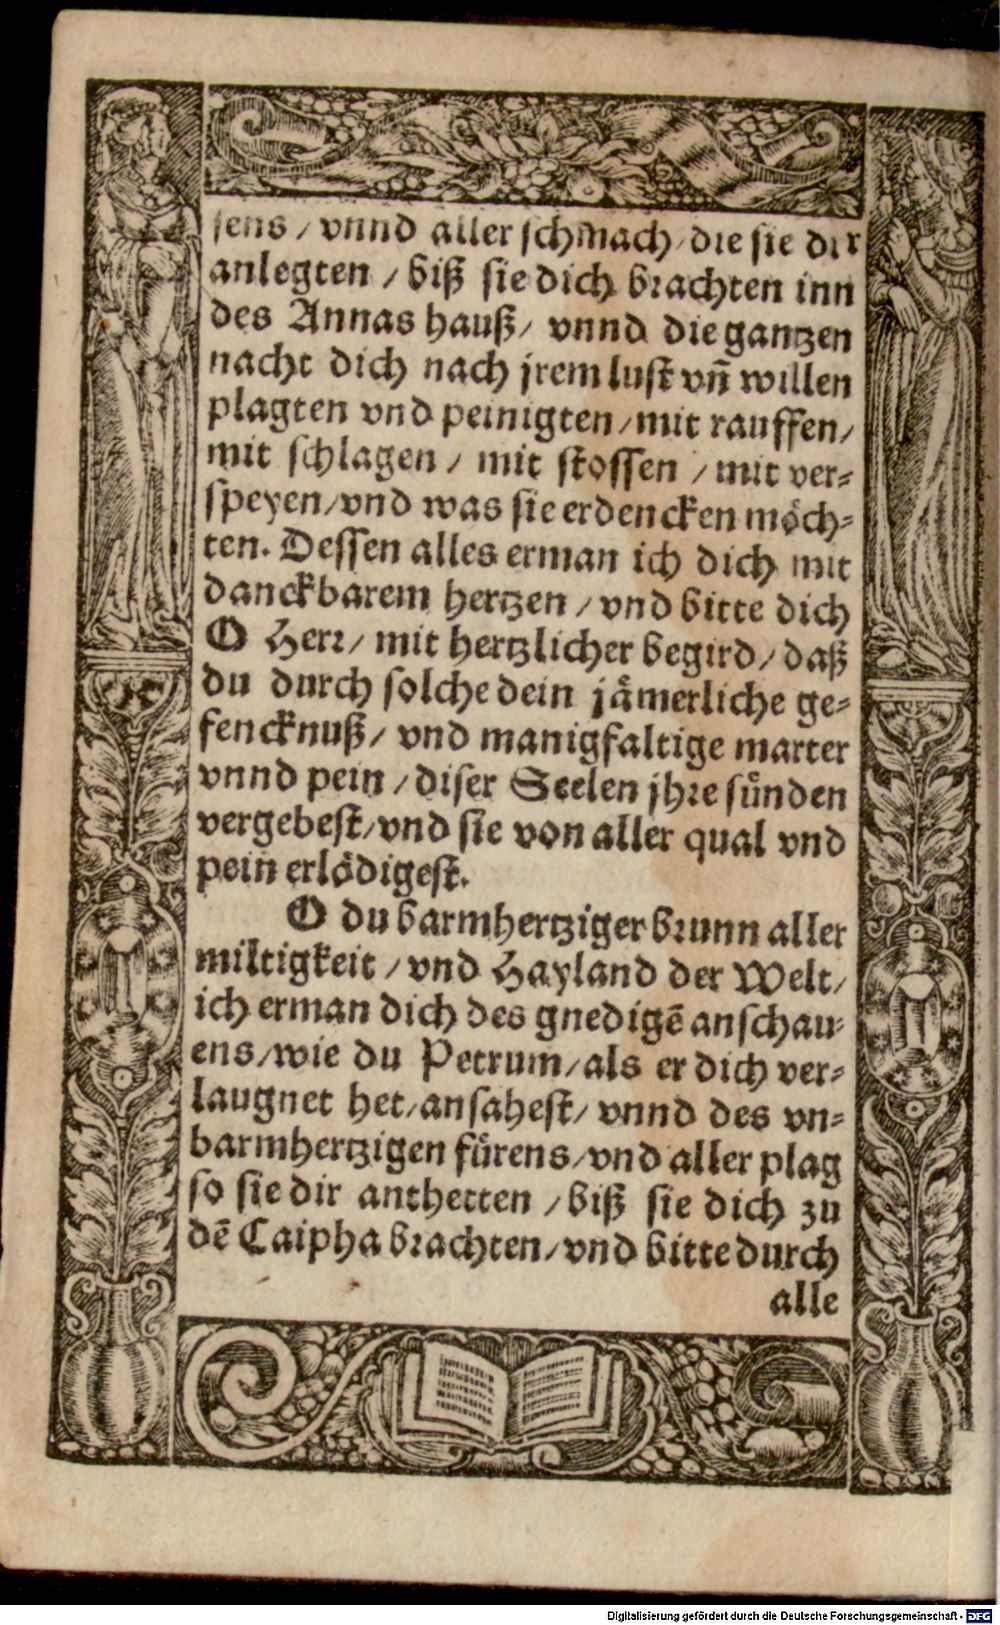 sens / vnnd aller schmach / die sie dir
anlegten / biß sie dich brachten inn
des Annas hauß / vnnd die gantzen
nacht dich nach jrem lust vñ willen
plagten vnd peinigten / mit rauffen /
mit schlagen / mit stossen / mit ver-
speyen / vnd was sie erdencken möch-
ten. Dessen alles erman ich dich mit
danckbarem hertzen / vnd bitte dich
O Herr / mit hertzlicher begird / daß
du durch solche dein jämerliche ge-
fencknuß / vnd manigfaltige marter
vnnd pein / diser Seelen jhre sünden
vergebest / vnd sie von aller qual vnd
pein erlödigest.
O du barmhertziger brunn aller
miltigkeit / vnd Hayland der Welt /
ich erman dich des gnedigē anschau-
ens / wie du Petrum / als er dich ver-
laugnet het / ansahest / vnnd des vn-
barmhertzigen fürens / vnd aller plag
so sie dir anthetten / biß sie dich zu
dē Caipha brachten / vnd bitte durch
alle
Digitalisierung gefördert durch die Deutsche Forschungsgemeinschaft - DFG